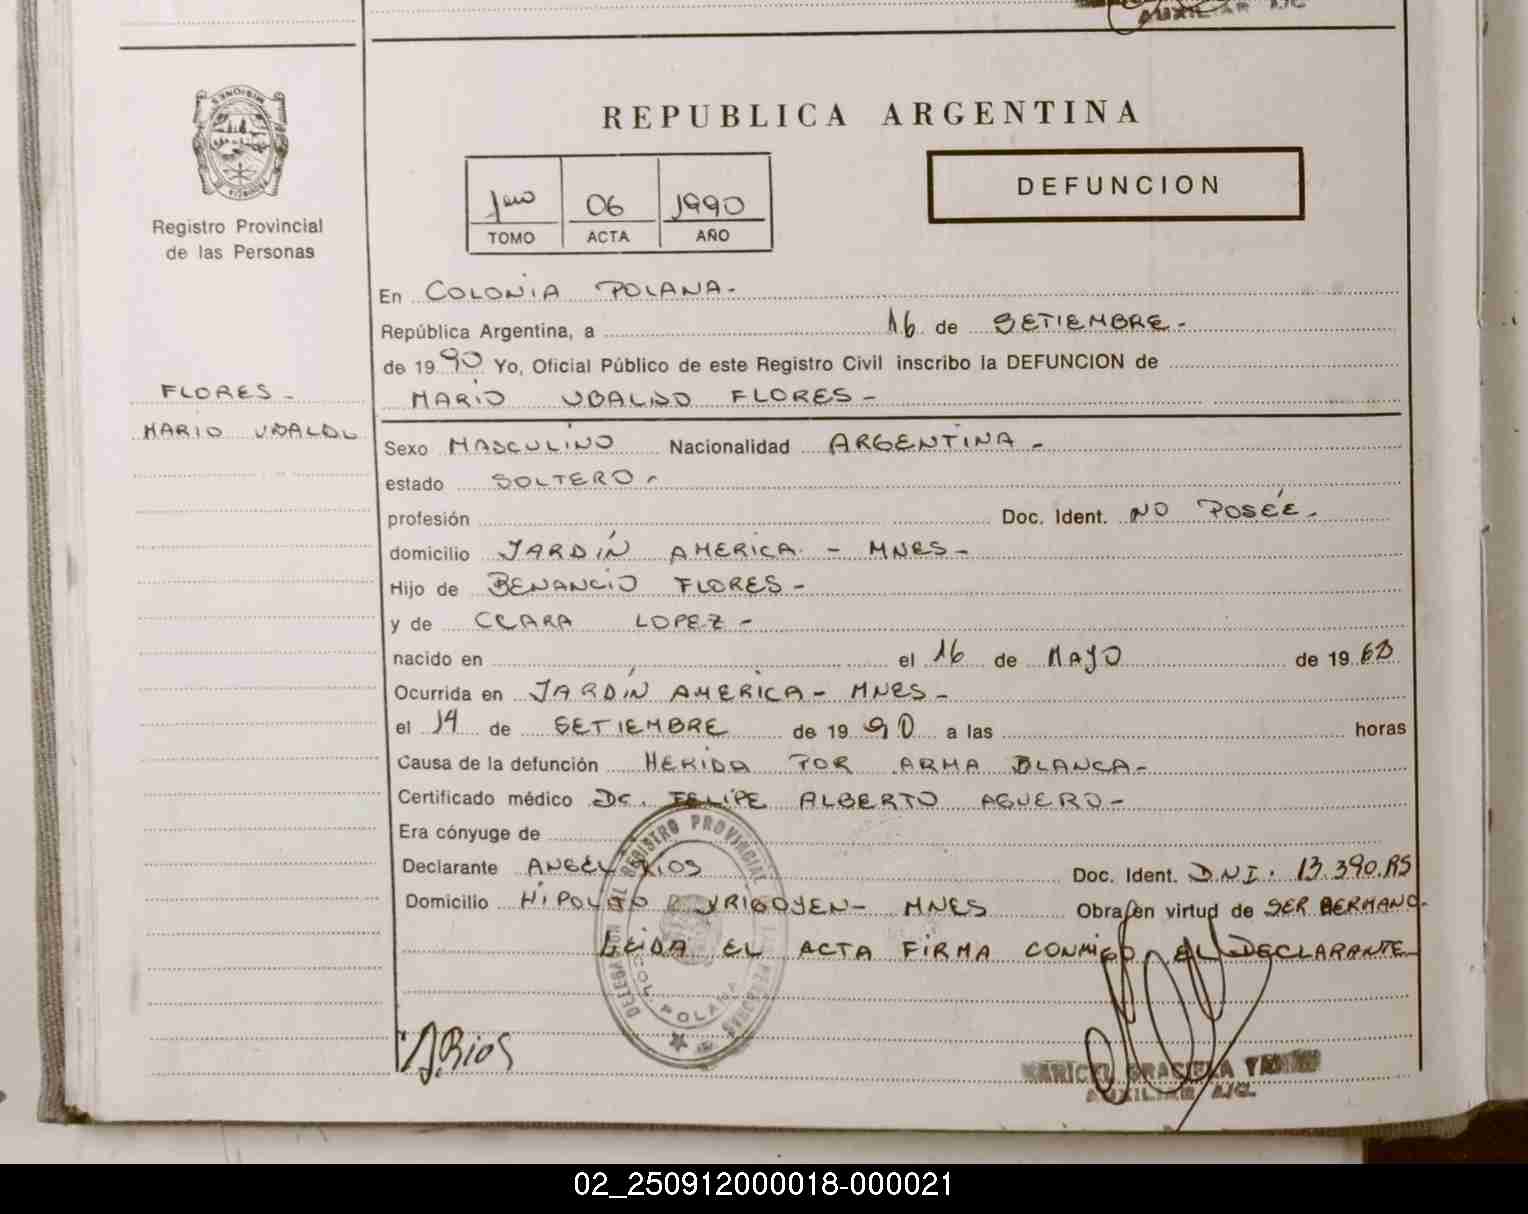 AUXILIAR A/C
MISIONES
REPUBLICA ARGENTINA
1990
06
TOMO ACTA AÑO
DEFUNCION
Registro Provincial
de las Personas
En COLONIA POLANA-
República Argentina, a 16 de SETIEMBRE-
de 1990 Yo, Oficial Público de este Registro Civil inscribo la DEFUNCION de
FLORES-
MARIO UBALDO FLORES-
MARIO UBALDO
Sexo MASCULINO Nacionalidad ARGENTINA-
estado SOLTERO-
profesión Doc. Ident. NO POSÉE-
domicilio JARDÍN AMERICA - MNES-
Hijo de BENANCIO FLORES-
y de CLARA LOPEZ-
nacido en el 16 de MAYO de 19
Ocurrida en JARDÍN AMERICA - MNES-
el 14 de SETIEMBRE de 1990 a las horas
Causa de la defunción HERIDA POR ARMA BLANCA-
Certificado médico Dr. FELIPE ALBERTO AGUERO-
Era cónyuge de
Declarante ANGEL RIOS Doc. Ident. D.N.I. 13.390.
Domicilio HIPOLITO YRIGOYEN- MNES Obra en virtud de SER HERMANO-
LEIDA EL ACTA FIRMA CONMIGO EL DECLARANTE
DELEGACION DEL REGISTRO PROVINCIAL DE LAS PERSONAS
COL. POLANA
A. Rios
MARICEL GRACIELA
AUXILIAR A/C.
02_250912000018-000021